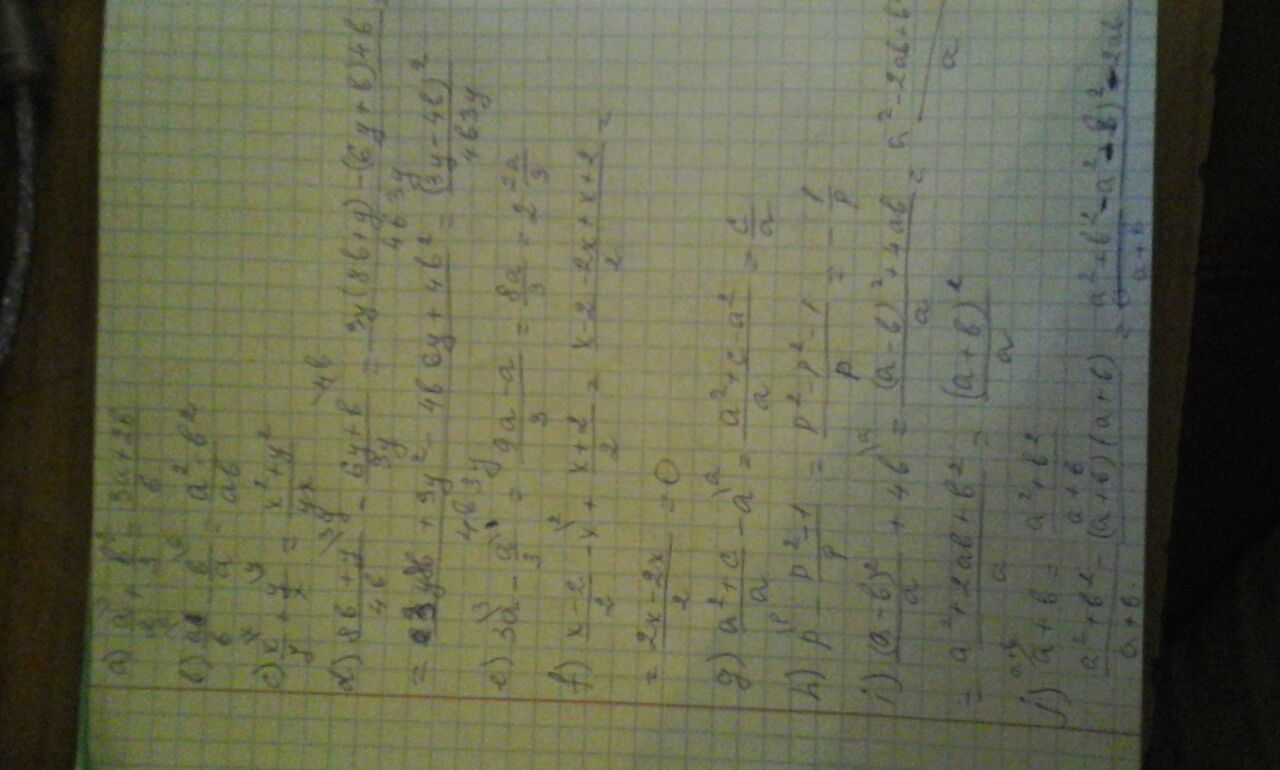 a) a/3 + b/3 = 3a+2b/6
b) a/b - b/a = a²-b²/ab
c) x/y + y/x = x²+y²/yx
d) 8b+y/4b - 6y+b/3y = 3y(8b+y)-(6y+b)4b/4b3y
+3y²- 4b6y+4b²/4b3y = (3y-4b)²/4b3y
e) 3a - a/3 = 9a-a/3 = 8a/3 = 2 2a/3
f) x-2/2 - x + x+2/2 = x-2-2x+x+2/2 =
= 2x-2x/2 = 0
g) a²+c/a - a = a²+c-a²/a = c/a
h) p - p²-1/p = p²-p²-1/p = - 1/p
i) (a-b)²/a + 4b = (a-b)²+4ab/a = a²-2ab+b²/a
= a²+2ab+b²/a = (a+b)²/a
j) a+b = a²+b²/a+b
a²+b²-(a+b)(a+b)/a+b = a²+b²-a²-b²-2ab/a+b